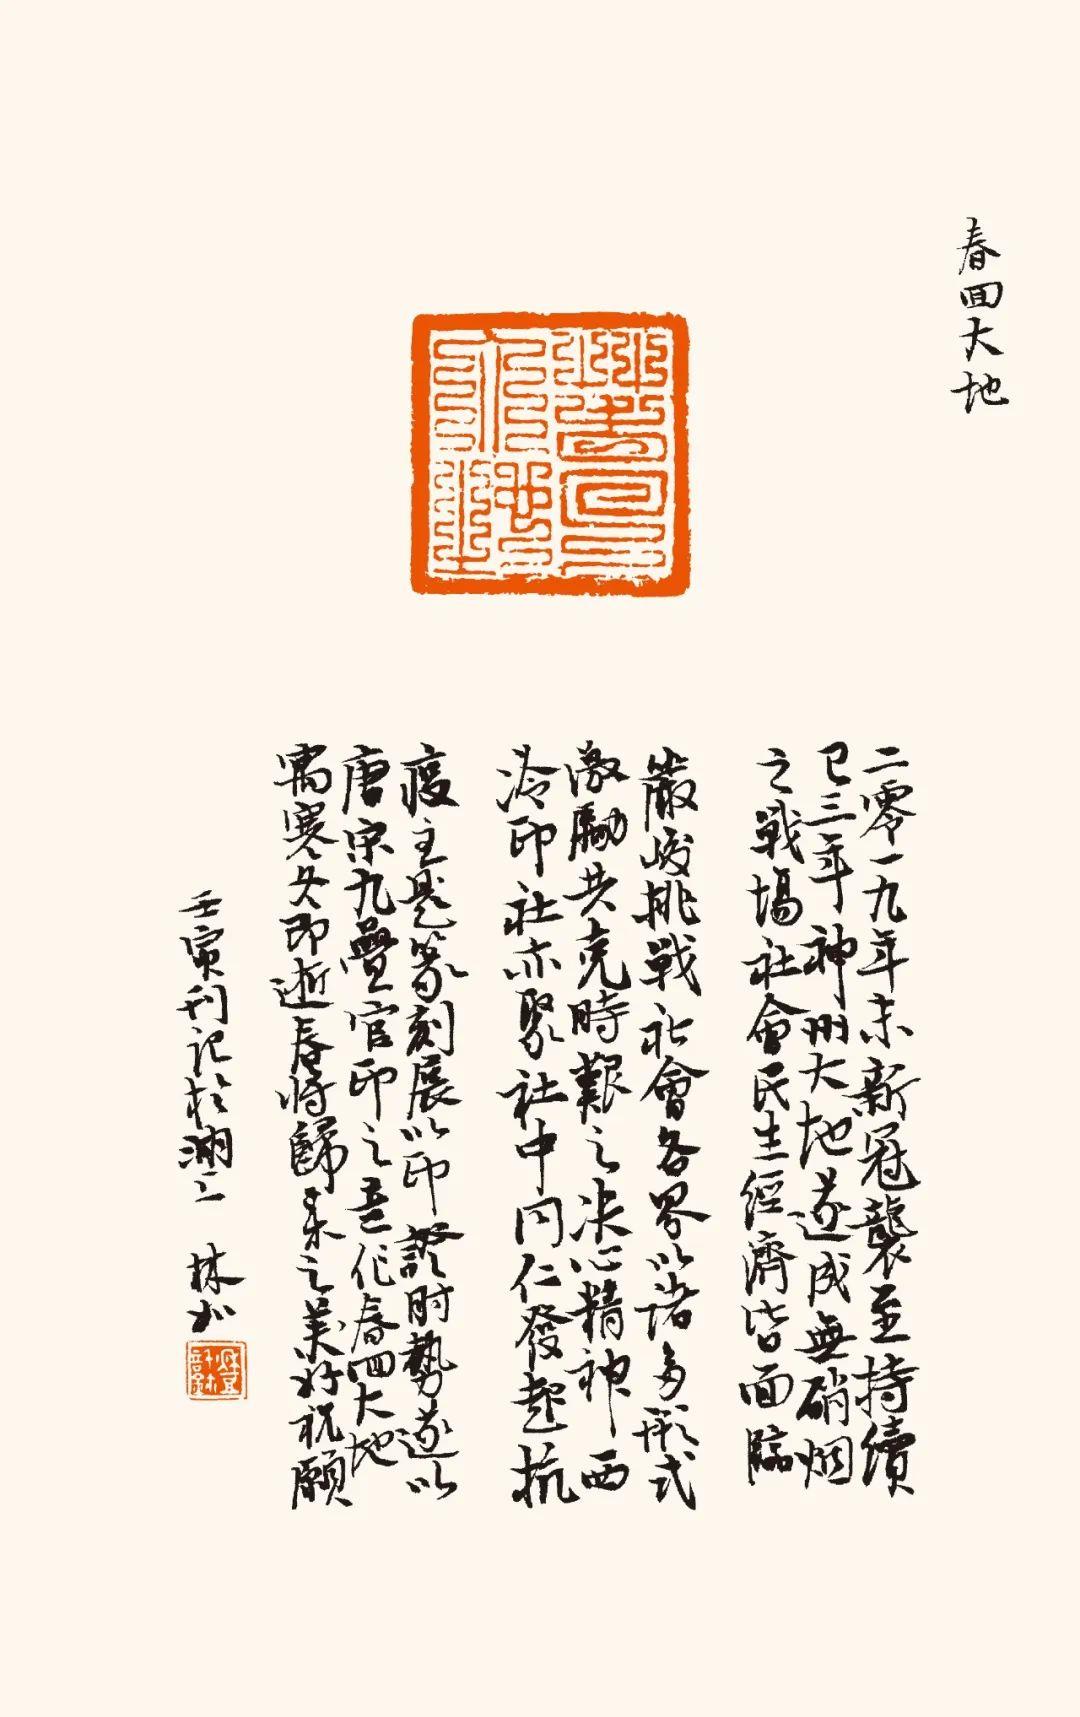 春回大地
春回大地
二零一九年末新冠襲至持續
已三年神州大地遂成無硝烟
之戰場社會民生經濟皆面臨
嚴峻挑戰社會各界以諸多形式
激勵共克時艱之决心精神西
泠印社亦聚社中同仁發起抗
疫主題篆刻展以印證時勢遂以
唐宋九疊官印之意作春回大地
寓寒冬即逝春將歸來之美好祝願
壬寅刊記於湖上 林如